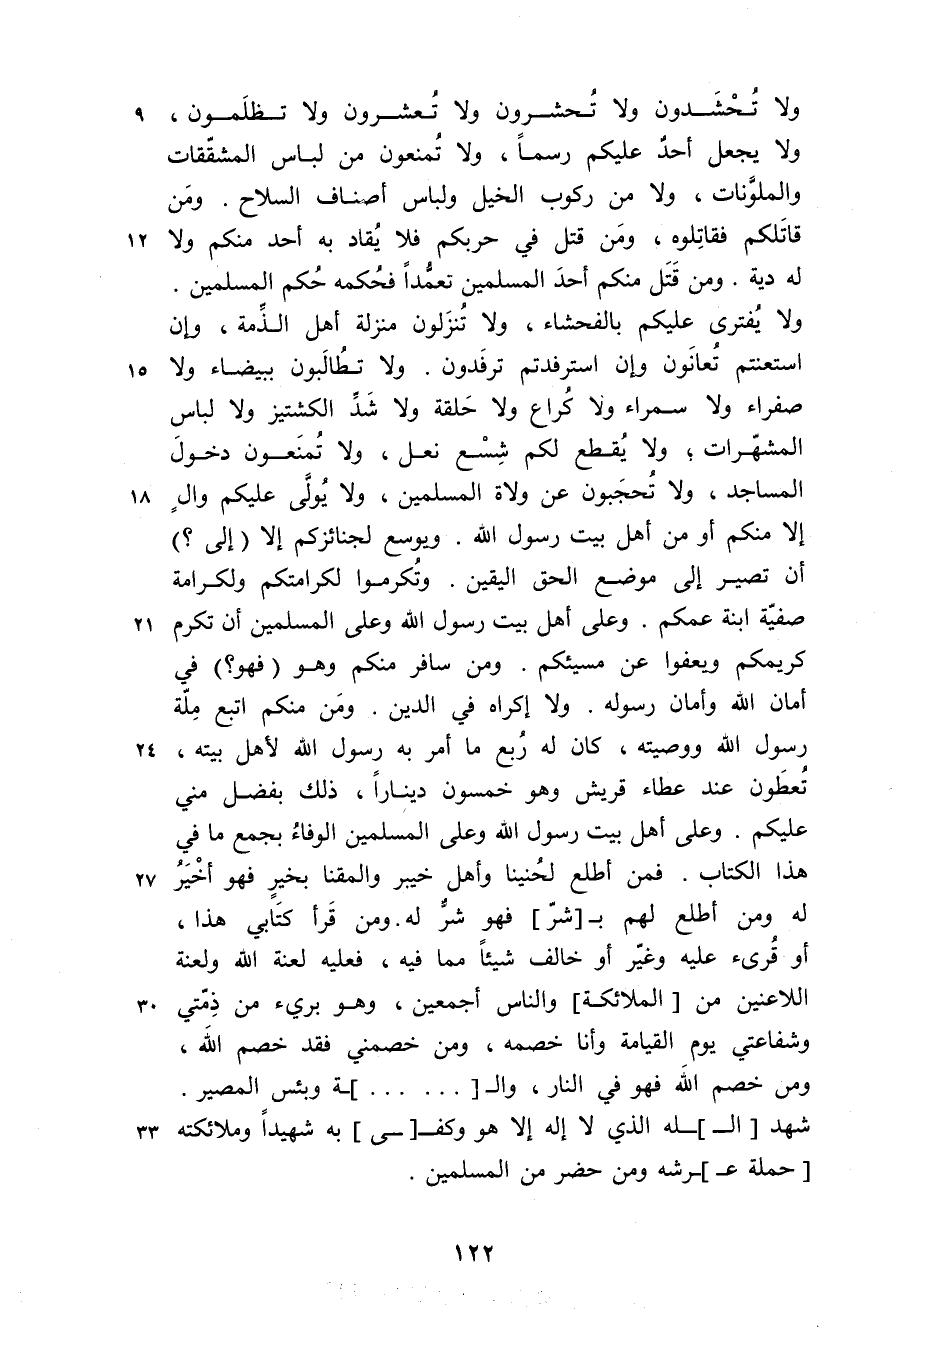 ولا تُحْشَدون ولا تُحشرون ولا تُعشرون ولا تظلَمون ، ٩
ولا يجعل أحدٌ عليكم رسماً ، ولا تُمنعون من لباس المشقّقات
والملوَّنات ، ولا من ركوب الخيل ولباس أصناف السلاح . ومَن
قاتَلكم فقاتِلوه ، ومَن قتل في حربكم فلا يُقاد به أحد منكم ولا ١٢
له دية . ومن قَتَل منكم أحدَ المسلمين تعمُّداً فحُكمه حُكم المسلمين .
ولا يُفترى عليكم بالفحشاء ، ولا تُنزَلون منزلة أهل الذِّمة ، وإن
استعنتم تُعانُون وإن استرفدتم ترفَدون . ولا تطُالَبون ببيضاء ولا ١٥
صفراء ولا سمراء ولا كُراع ولا حَلقة ولا شَدِّ الكشتيز ولا لباس
المشهّرات ؛ ولا يُقطع لكم شِسْع نعل ، ولا تُمنَعون دخولَ
المساجد ، ولا تُحجَبون عن ولاة المسلمين ، ولا يُولَّى عليكم والٍ ١٨
إلا منكم أو من أهل بيت رسول الله . ويوسع لجنائزكم إلا (إلى ؟)
أن تصير إلى موضع الحق اليقين . وتُكرموا لكرامتكم ولكرامة
صفيّة ابنة عمكم . وعلى أهل بيت رسول الله وعلى المسلمين أن تكرم ٢١
كريمكم ويعفوا عن مسيئكم . ومن سافر منكم وهو (فهو؟) في
أمان الله وأمان رسوله . ولا إكراه في الدين . ومَن منكم اتبع مِلّة
رسول الله ووصيته ، كان له رُبع ما أمر به رسول الله لأهل بيته ، ٢٤
تُعطَون عند عطاء قريش وهو خمسون ديناراً ، ذلك بفضل مني
عليكم . وعلى أهل بيت رسول الله وعلى المسلمين الوفاءُ بجمع ما في
هذا الكتاب . فمن أطلع لحُنينا وأهل خيبر والمقنا بخيرٍ فهو أخْيَرُ ٢٧
له ومن أطلع لهم بـ[شرّ] فهو شرٌّ له. ومن قَرأ كتَابي هذا ،
أو قُرىء عليه وغيّر أو خالف شيئاً مما فيه ، فعليه لعنة الله ولعنة
اللاعنين من [الملائكة] والناس أجمعين ، وهو بريء من ذِمّتي ٣٠
وشفاعتي يوم القيامة وأنا خصمه ، ومن خصمني فقد خصم اللهَ ،
ومن خصم اللهَ فهو في النار ، والـ[ . . . . . . ]ـة وبئس المصير .
شهد [ الـ ]ـله الذي لا إله إلا هو وكفـ[ـى ] به شهيداً وملائكته ٣٣
[ حملة عـ ]ـرشه ومن حضر من المسلمين .
١٢٢